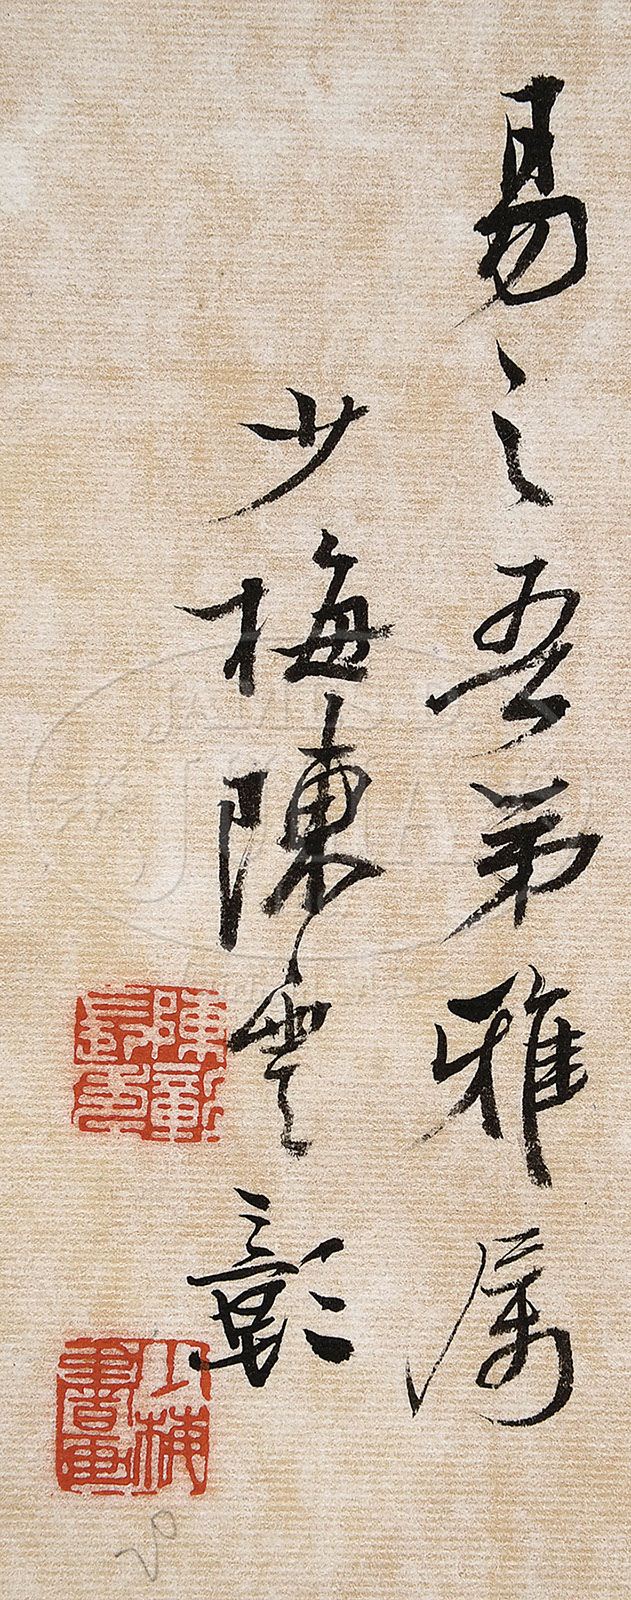 易之吾弟雅属
少梅陳雲彰
陳雲彰
少梅書畫
20